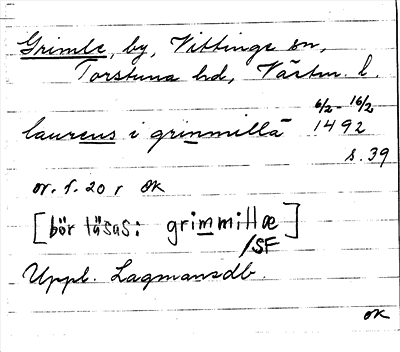 Grimle, by, Vittinge sn,
Torstuna hd, Västm. l.
6/2 - 16/2
laurens i grinmillä 1492
s. 39
or. f. 20 r OK
[bör läsas: grimmillæ]
/SF
Uppl. Lagmansdb.
OK